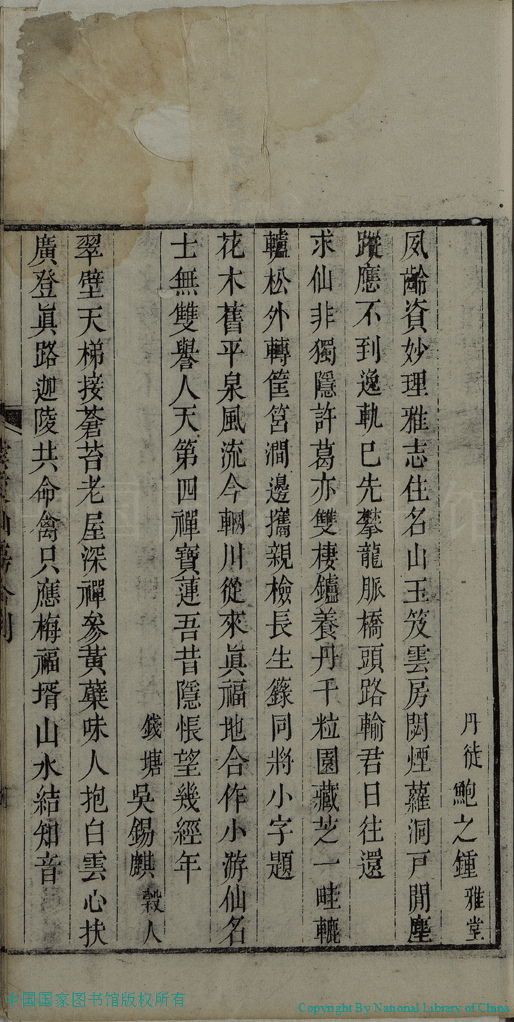 丹徒鮑之鍾雅堂
夙齡資妙理雅志住名山玉笈雲房閟煙蘿洞戸閒塵
蹤應不到逸軌已先攀龍脈橋頭路輸君日往還
求仙非獨隱許葛亦雙棲鑪養丹千粒園藏芝一畦轆
轤松外轉筐筥澗邊攜親檢長生籙同將小字題
花木舊平泉風流今輞川從來眞福地合作小游仙名
士無雙譽人天第四禪寶蓮吾昔隱悵望幾經年
錢塘吳錫麒穀人
翠壁天梯接蒼苔老屋深禪參黃蘗味人抱白雲心扶
廣登眞路迦陵共命禽只應梅福壻山水結知音
中国国家图书馆版权所有
Copyright By National Library of China